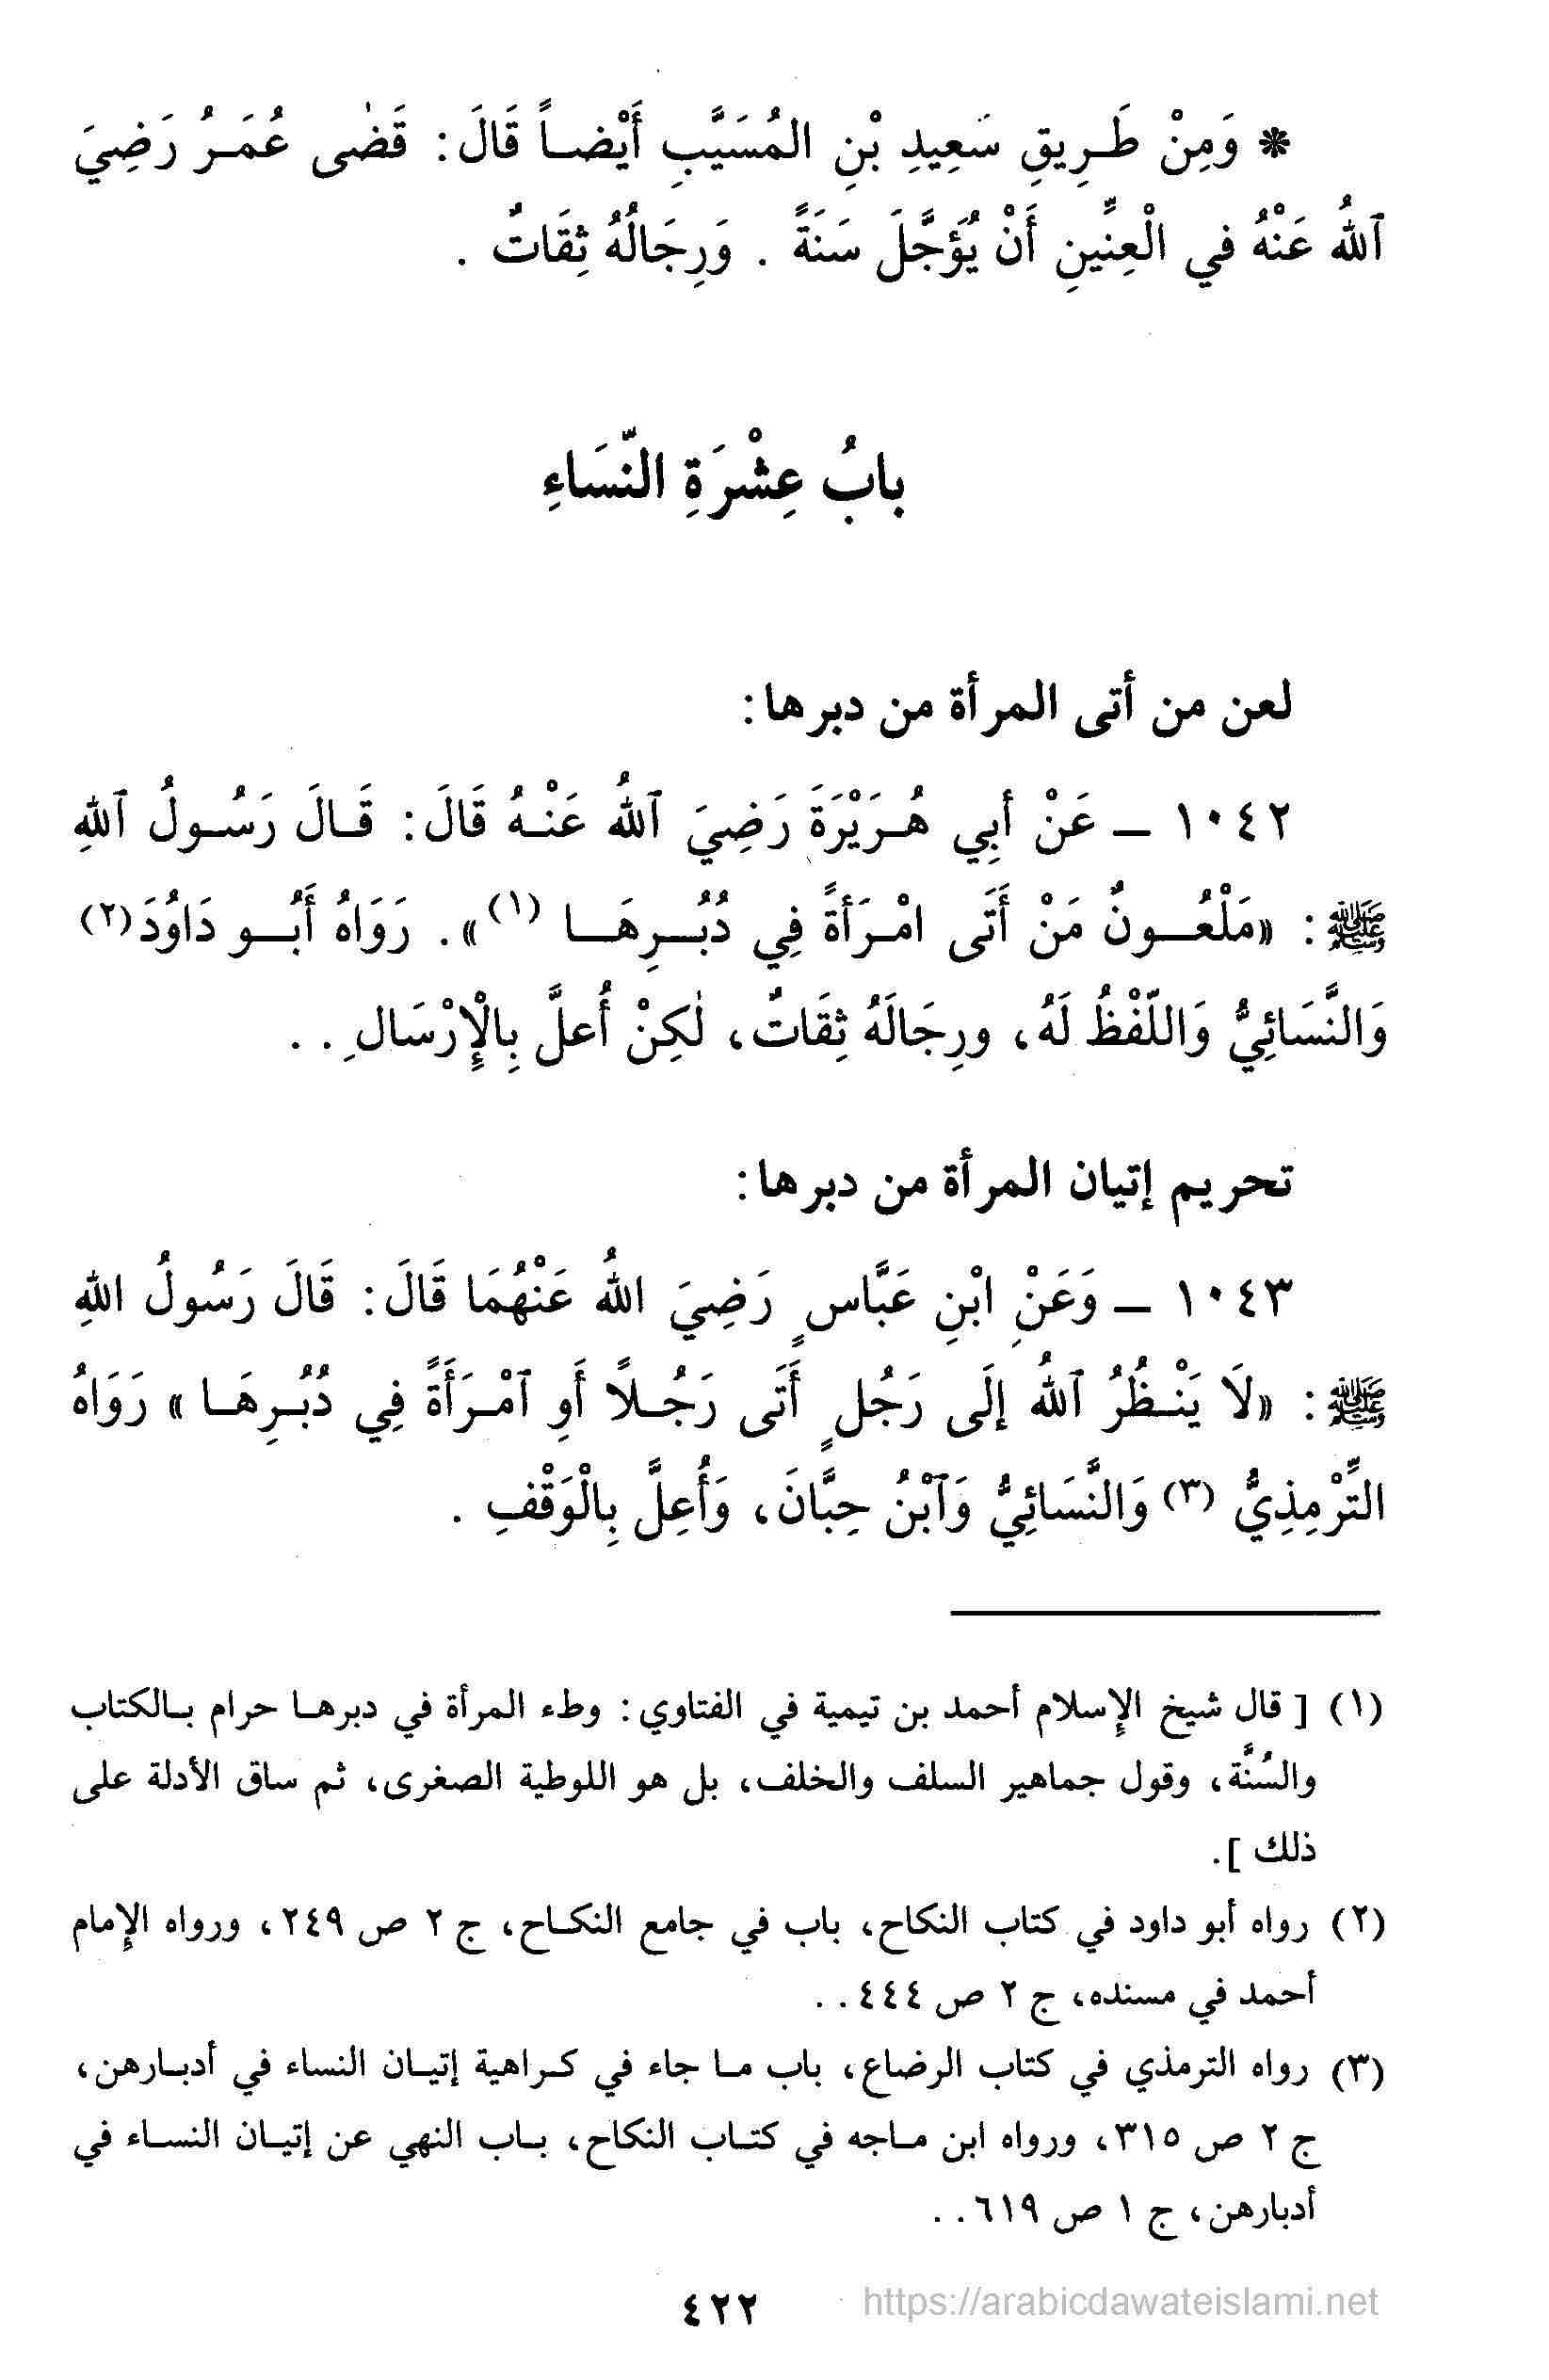 * وَمِنْ طَرِيقِ سَعِيدِ بْنِ المُسَيَّبِ أَيْضاً قَالَ: قَضٰى عُمَرُ رَضِيَ
ٱللهُ عَنْهُ في الْعِنِّينِ أَنْ يُؤَجَّلَ سَنَةً . وَرِجَالُهُ ثِقَاتٌ .
بابُ عِشْرَةِ النّسَاءِ
لعن من أتى المرأة من دبرها:
١٠٤٢ – عَنْ أَبِي هُرَيْرَةَ رَضِيَ ٱللهُ عَنْهُ قَالَ: قَالَ رَسُولُ ٱللهِ
ﷺ: «مَلْعُونٌ مَنْ أَتَى امْرَأةً فِي دُبُرِهَا (١)». رَوَاهُ أَبُو دَاوُدَ(٢)
وَالنَّسَائِيُّ وَاللّفْظُ لَهُ، ورِجَالَهُ ثِقَاتٌ، لٰكِنْ أُعلَّ بِالْإِرْسَالِ . .
تحريم إتيان المرأة من دبرها:
١٠٤٣ – وَعَنِ ابْنِ عَبَّاسٍ رَضِيَ اللهُ عَنْهُمَا قَالَ: قَالَ رَسُولُ اللهِ
ﷺ: «لَا يَنْظُرُ ٱللهُ إلَى رَجُلٍ أَتَى رَجُلاً أَوِ ٱمْرَأَةً فِي دُبُرِهَا» رَوَاهُ
التِّرْمِذِيُّ (٣) وَالنَّسَائِيُّ وَٱبْنُ حِبَّانَ، وَأُعِلَّ بِالْوَقْفِ .
(١) [ قال شيخ الإسلام أحمد بن تيمية في الفتاوي: وطء المرأة في دبرها حرام بالكتاب
والسُنَّة، وقول جماهير السلف والخلف، بل هو اللوطية الصغرى، ثم ساق الأدلة على
ذلك ].
(٢) رواه أبو داود في كتاب النكاح، باب في جامع النكاح، ج ٢ ص ٢٤٩، ورواه الإمام
أحمد في مسنده، ج ٢ ص ٤٤٤ . .
(٣) رواه الترمذي في كتاب الرضاع، باب ما جاء في كراهية إتيان النساء في أدبارهن،
ج ٢ ص ٣١٥، ورواه ابن ماجه في كتاب النكاح، باب النهي عن إتيان النساء في
أدبارهن، ج ١ ص ٦١٩ . .
٤٢٢
https://arabicdawateislami.net